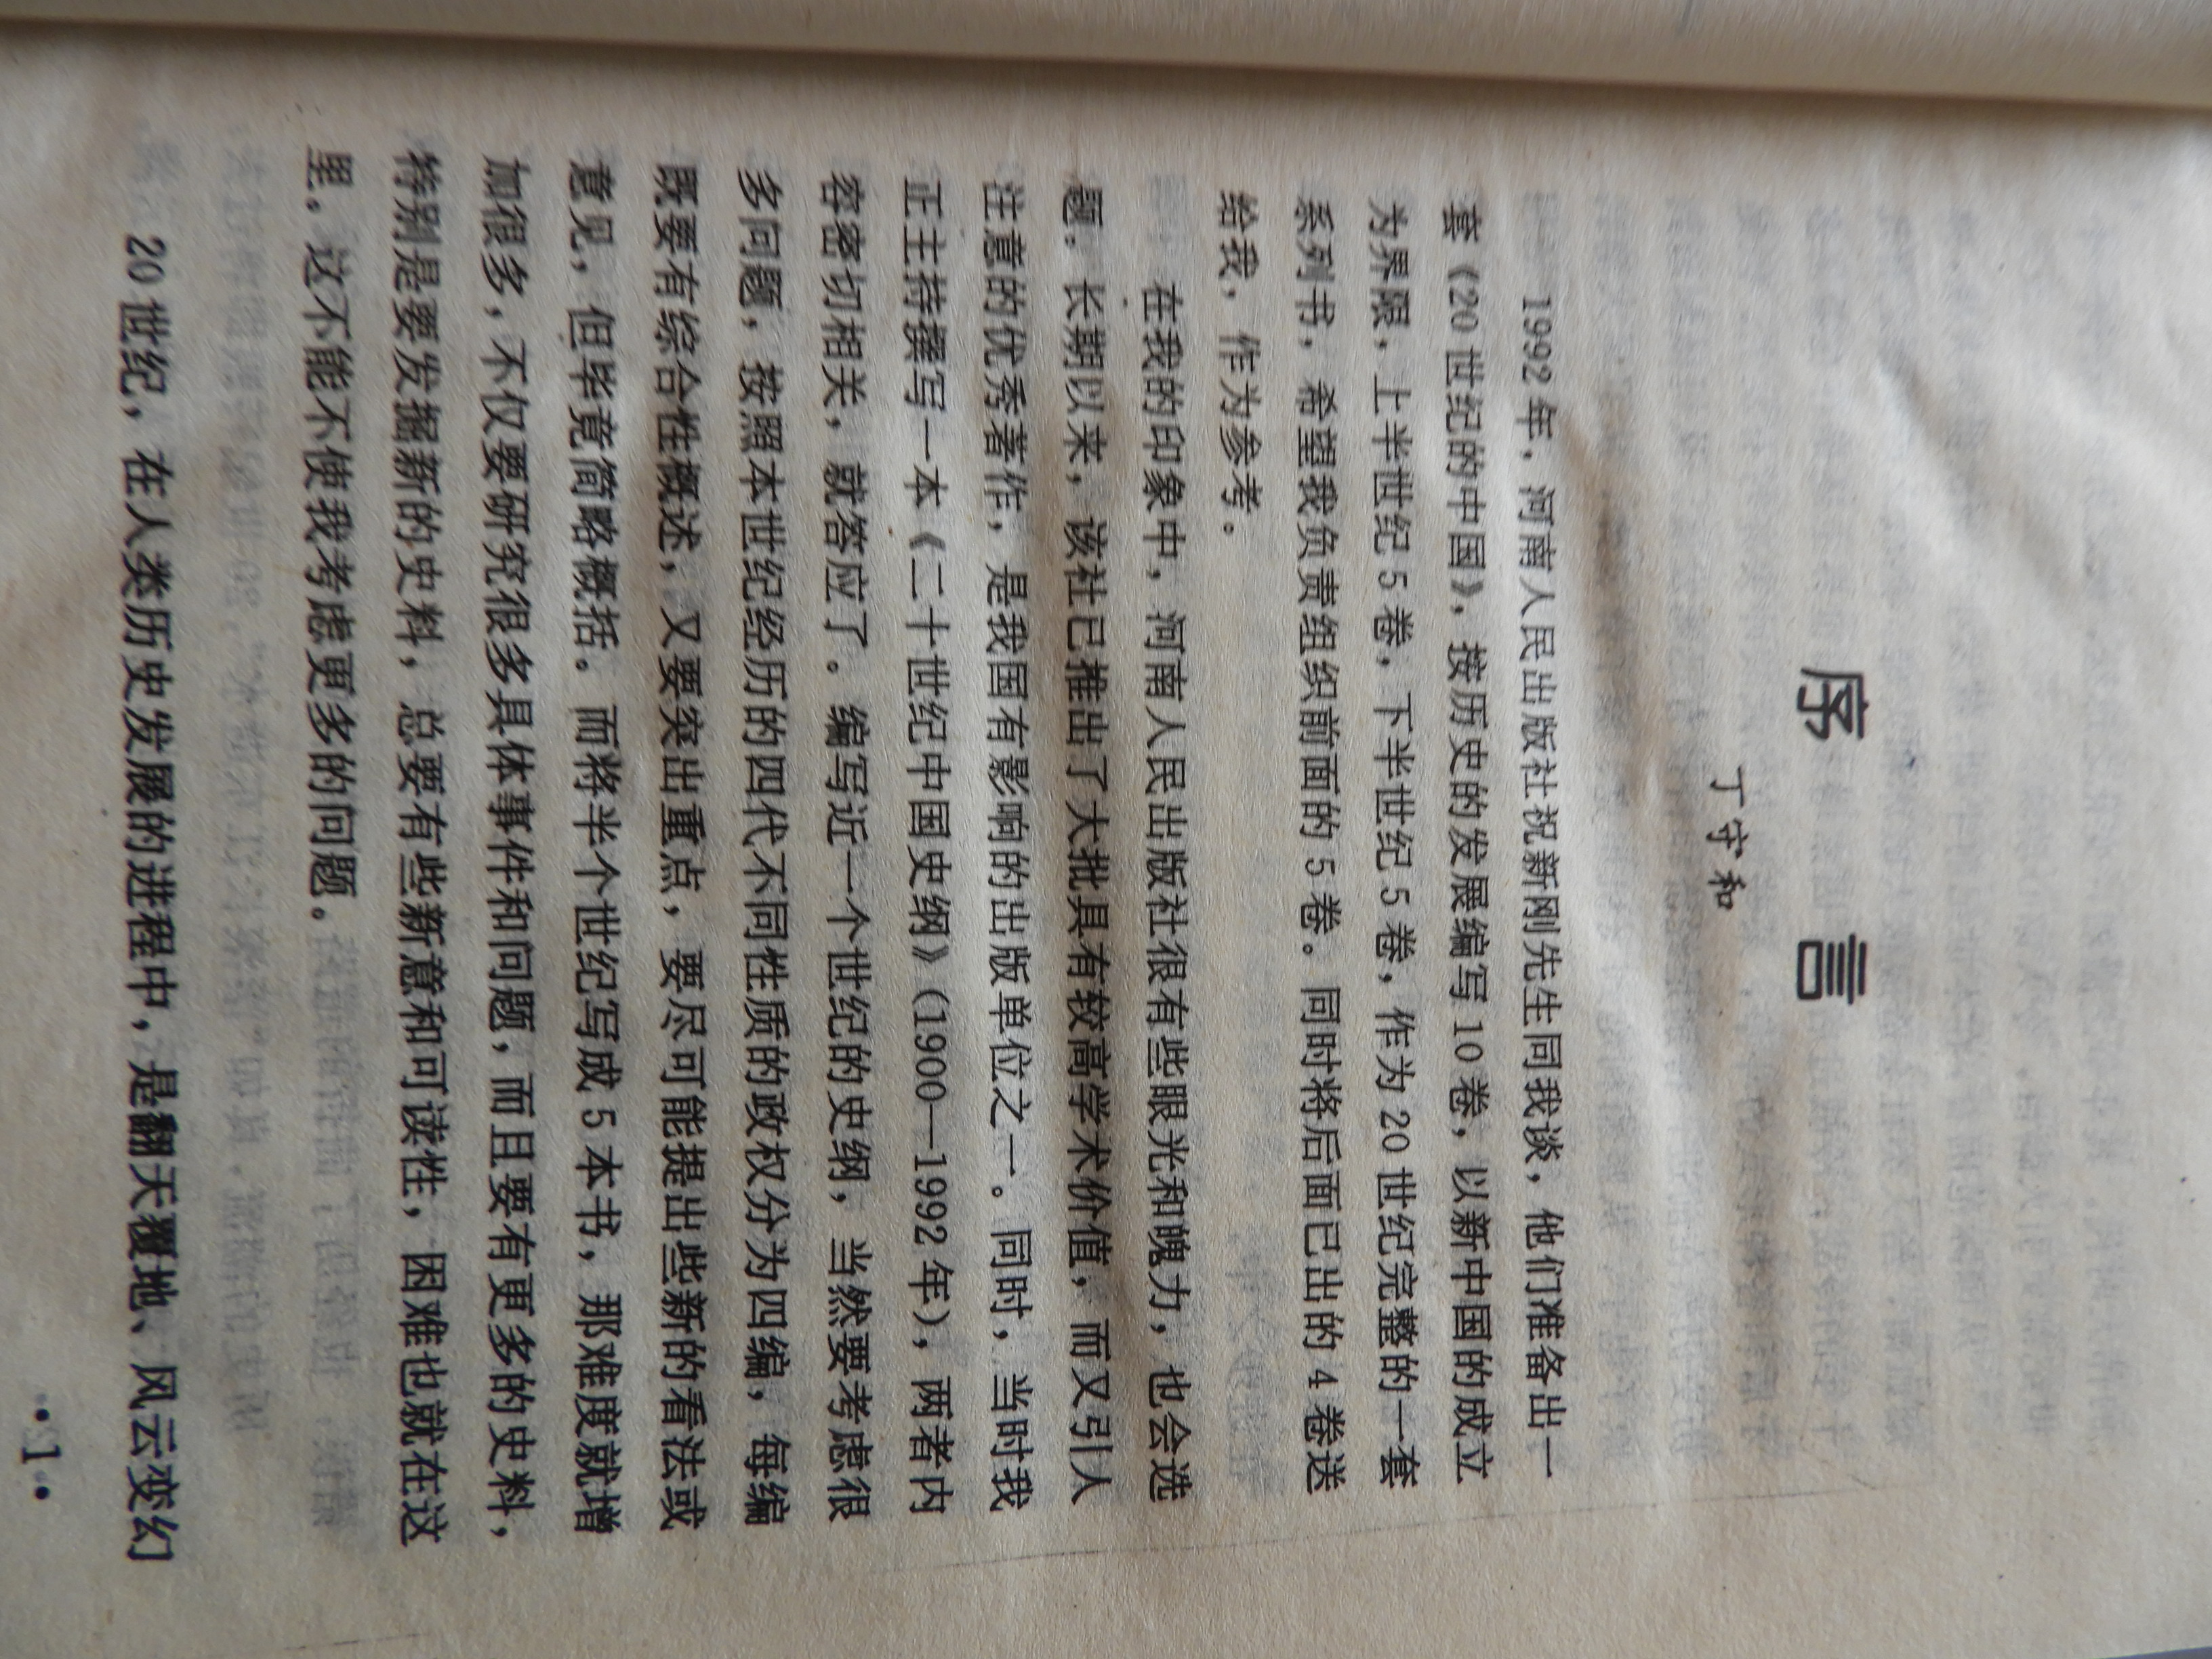 序 言
丁守和
1992年，河南人民出版社祝新刚先生同我谈，他们准备出一
套《20世纪的中国》，按历史的发展编写10卷，以新中国的成立
为界限，上半世纪5卷，下半世纪5卷，作为20世纪完整的一套
系列书，希望我负责组织前面的5卷。同时将后面已出的4卷送
给我，作为参考。
在我的印象中，河南人民出版社很有些眼光和魄力，也会选
题。长期以来，该社已推出了大批具有较高学术价值，而又引人
注意的优秀著作，是我国有影响的出版单位之一。同时，当时我
正主持撰写一本《二十世纪中国史纲》（1900—1992年），两者内
容密切相关，就答应了。编写近一个世纪的史纲，当然要考虑很
多问题，按照本世纪经历的四代不同性质的政权分为四编，每编
既要有综合性概述，又要突出重点，要尽可能提出些新的看法或
意见，但毕竟简略概括。而将半个世纪写成5本书，那难度就增
加很多，不仅要研究很多具体事件和问题，而且要有更多的史料，
特别是要发掘新的史料，总要有些新意和可读性，困难也就在这
里。这不能不使我考虑更多的问题。
20世纪，在人类历史发展的进程中，是翻天覆地、风云变幻
·1·